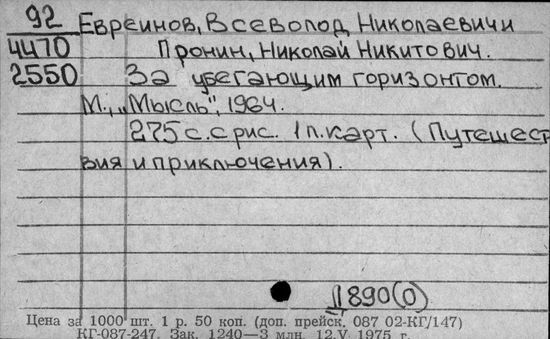 92 Евреинов, Всеволод Николаевичи
4470 Пронин, Николай Никитович.
2550 За убегающим горизонтом.
М., „Мысль", 1964.
275 с. с рис. 1 п. карт. (Путешест
вия и приключения).
Д 890(0)
Цена за 1000 шт. 1 р. 50 коп. (доп. прейск. 087 02-КГ/147)
КГ-087-247. Зак. 1240—3 млн. 12.V 1975 г.